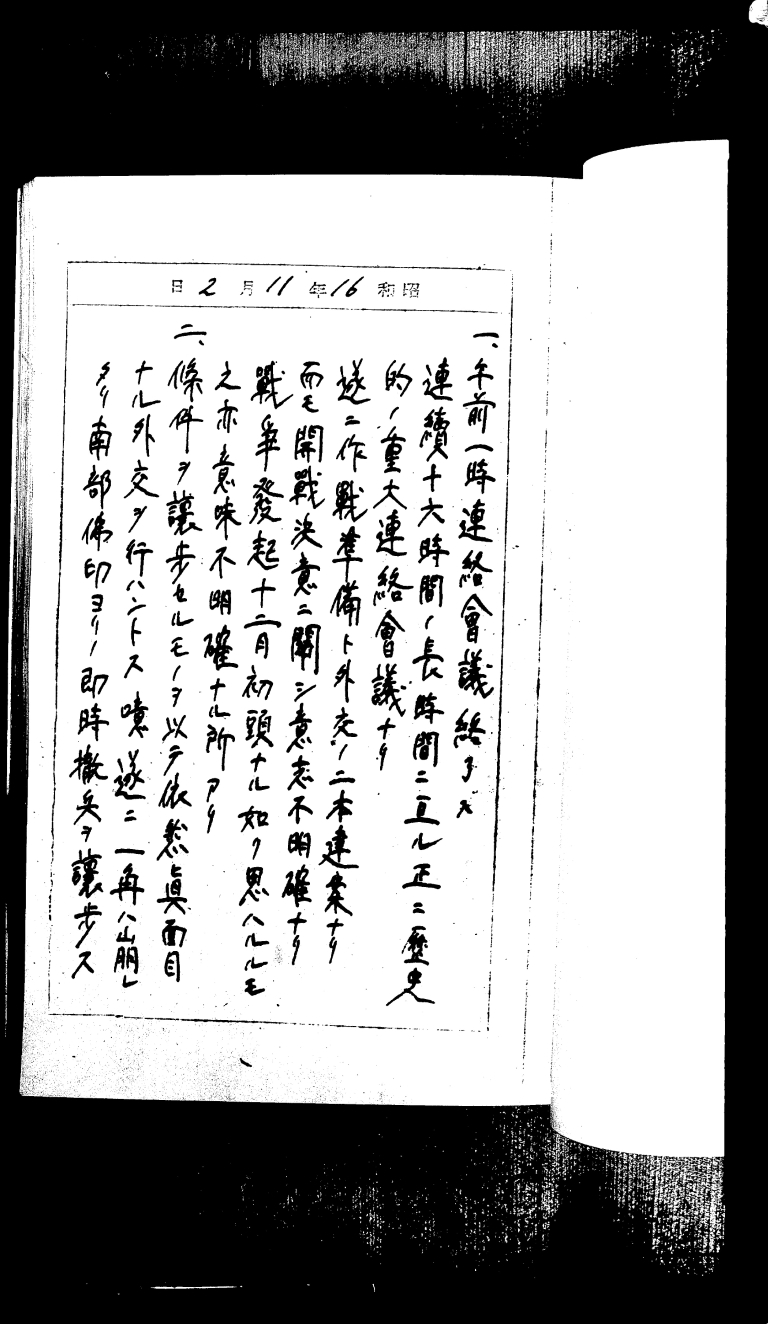 昭和16年11月2日
一、午前一時連絡會議終了ス
連續十六時間ノ長時間ニ亘ル正ニ歷史
的ノ重大連絡會議ナリ
遂ニ作戰準備ト外交ノ二本建案ナリ
而モ開戰決意ニ關シ意志不明確ナリ
戰爭發起十二月初頭ナル如ク思ハルルモ
之亦意味不明確ナル所アリ
二、條件ヲ讓步セルモノヲ以テ依然眞面目
ナル外交ヲ行ハントス噫遂ニ一角ハ崩レ
タリ南部佛印ヨリノ卽時撤兵ヲ讓步ス